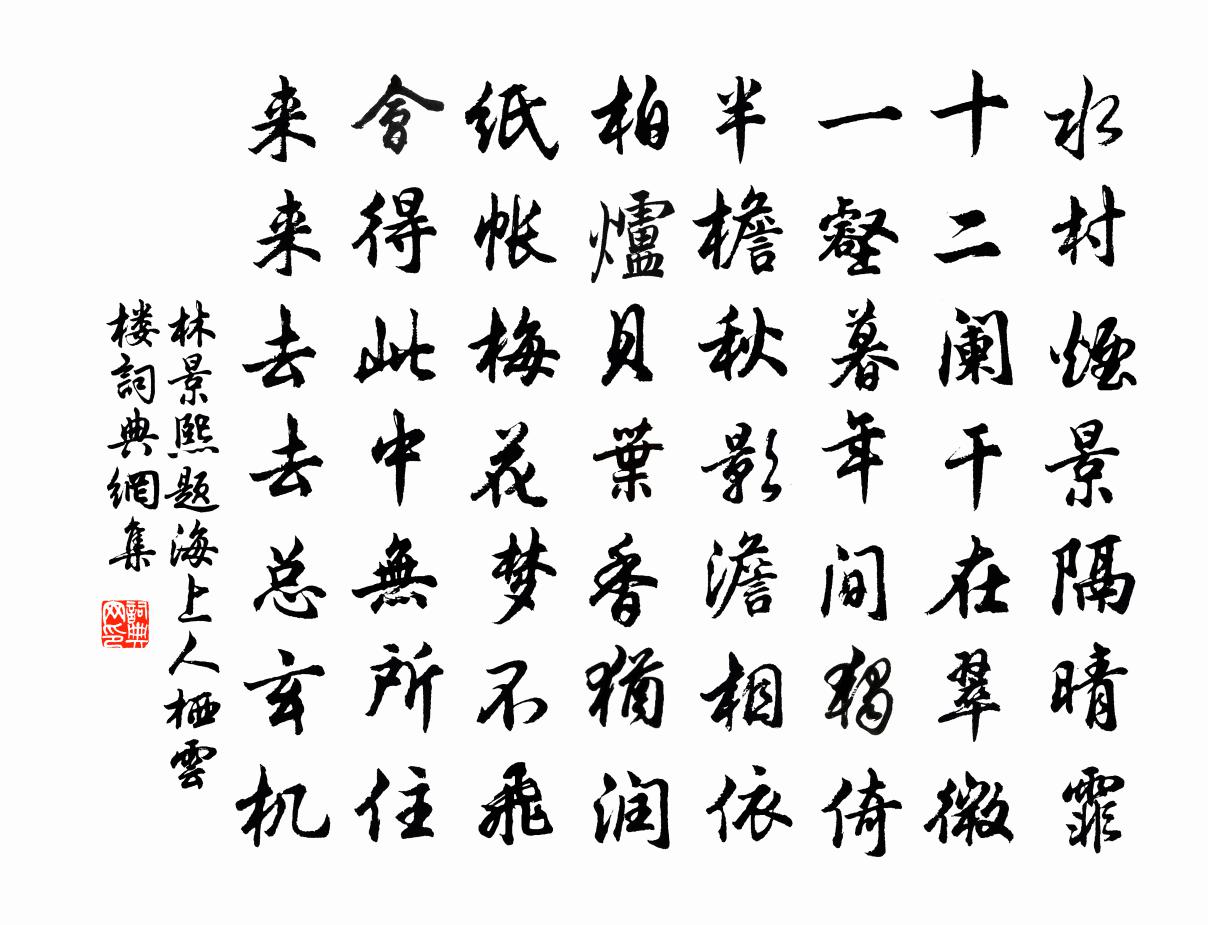 水村煙景隔晴霏
十二阑干在翠微
一壑暮年间獨倚
半檐秋影澹相依
柏爐貝葉香猶润
纸帐梅花梦不飛
會得此中無所住
来来去去总玄机
林景熙题海上人栖雲
楼詞典網集
詞典网印